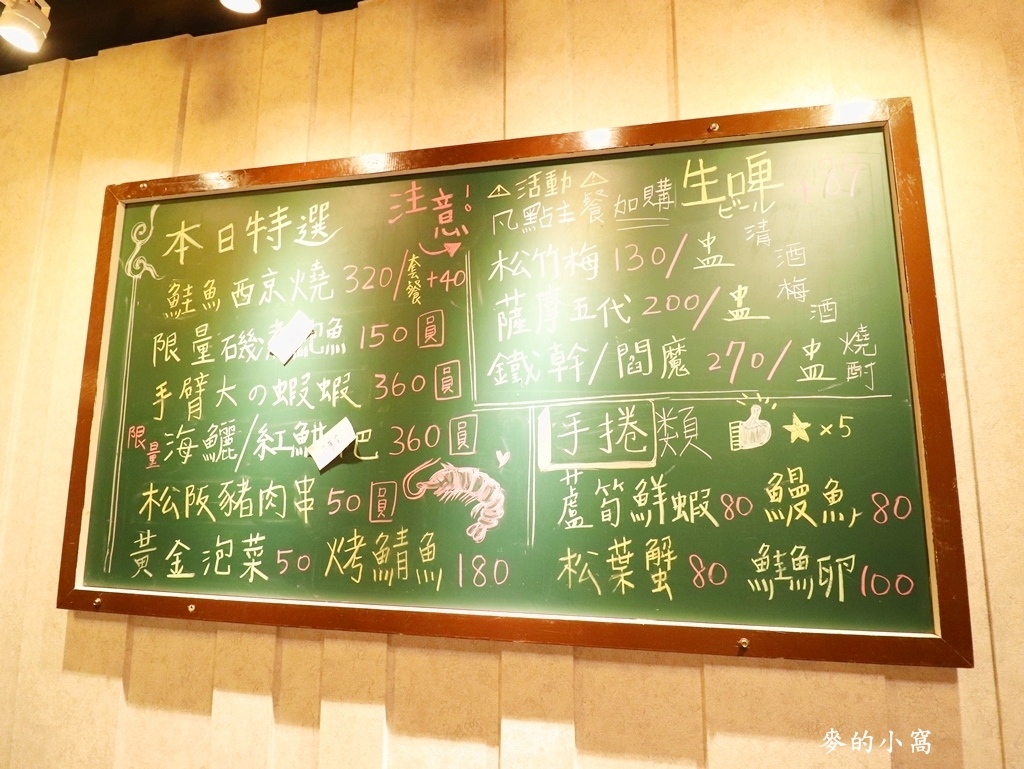 本日特選
注意!
鮭魚西京燒 320/套餐+40
限量磯煮魚 150圓
手臂大の蝦蝦 360圓
限量 海鱺/紅魽 巴 360圓
松阪豬肉串 50圓
黃金泡菜 50 烤鯖魚 180
△活動△
凡點主餐加購 生啤 ビール +67
松竹梅 130/盅 清酒
薩摩五代 200/盅 梅酒
鐵幹/閻魔 270/盅 燒酎
手捲類 ★×5
蘆筍鮮蝦 80 鰻魚 80
松葉蟹 80 鮭魚卵 100
麥的小窩